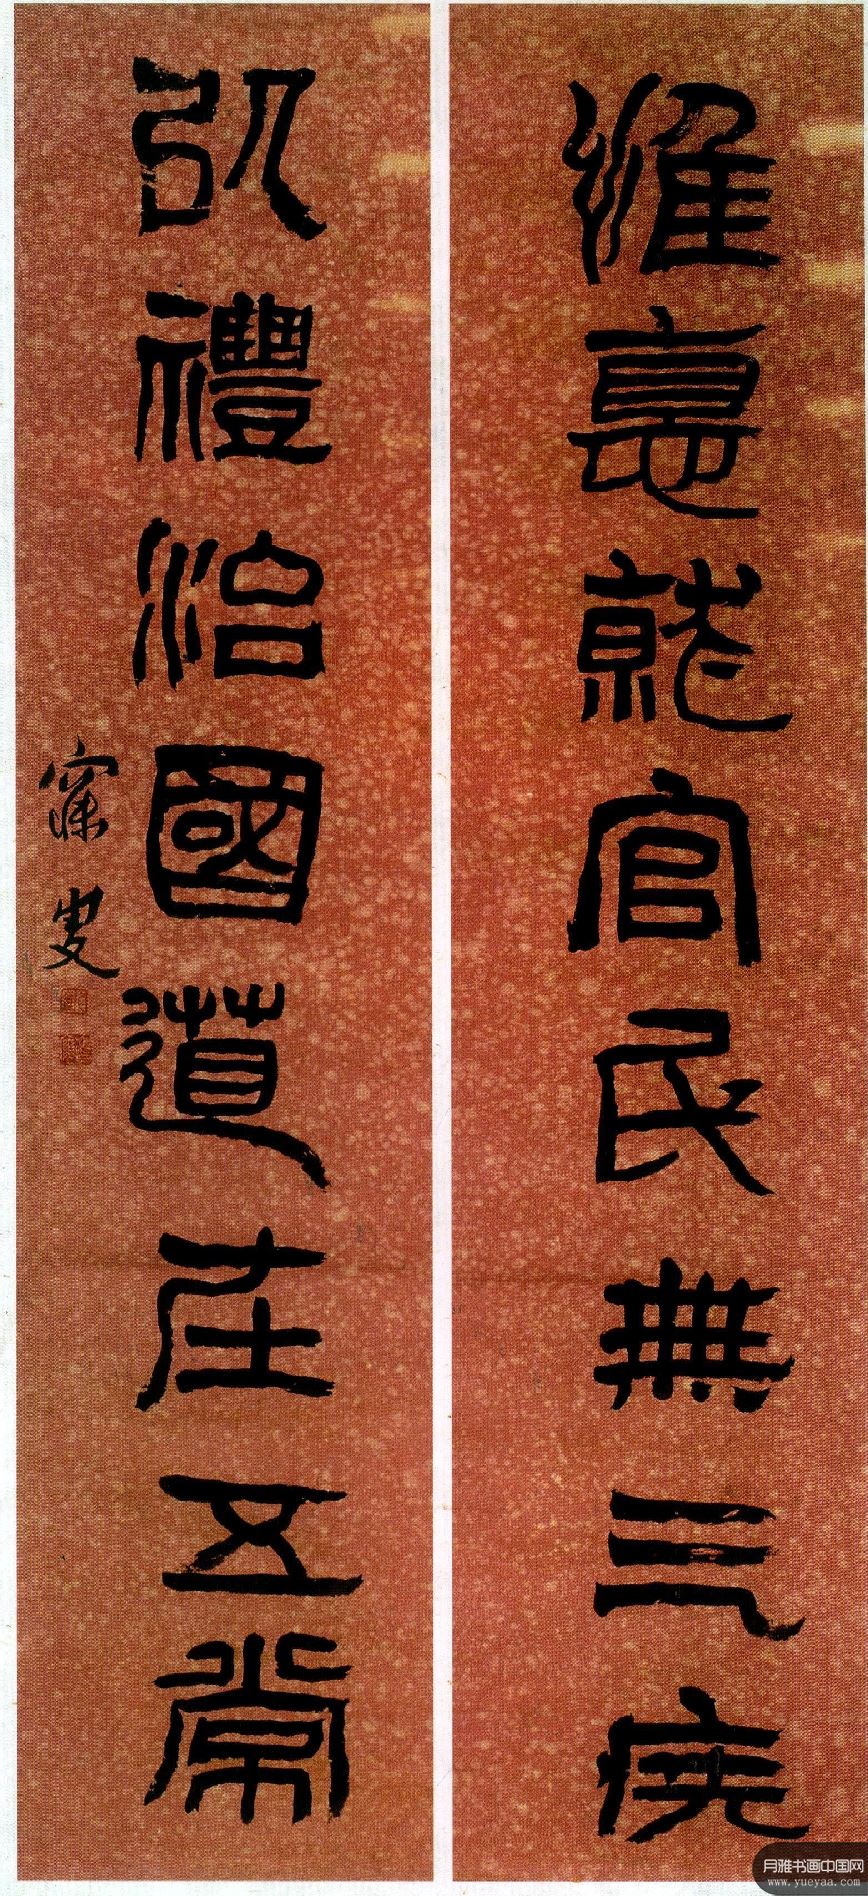 惟惪就官民無三疾
以禮治國道在五常
寐叟
月雅书画中国网
www.yueyaa.com